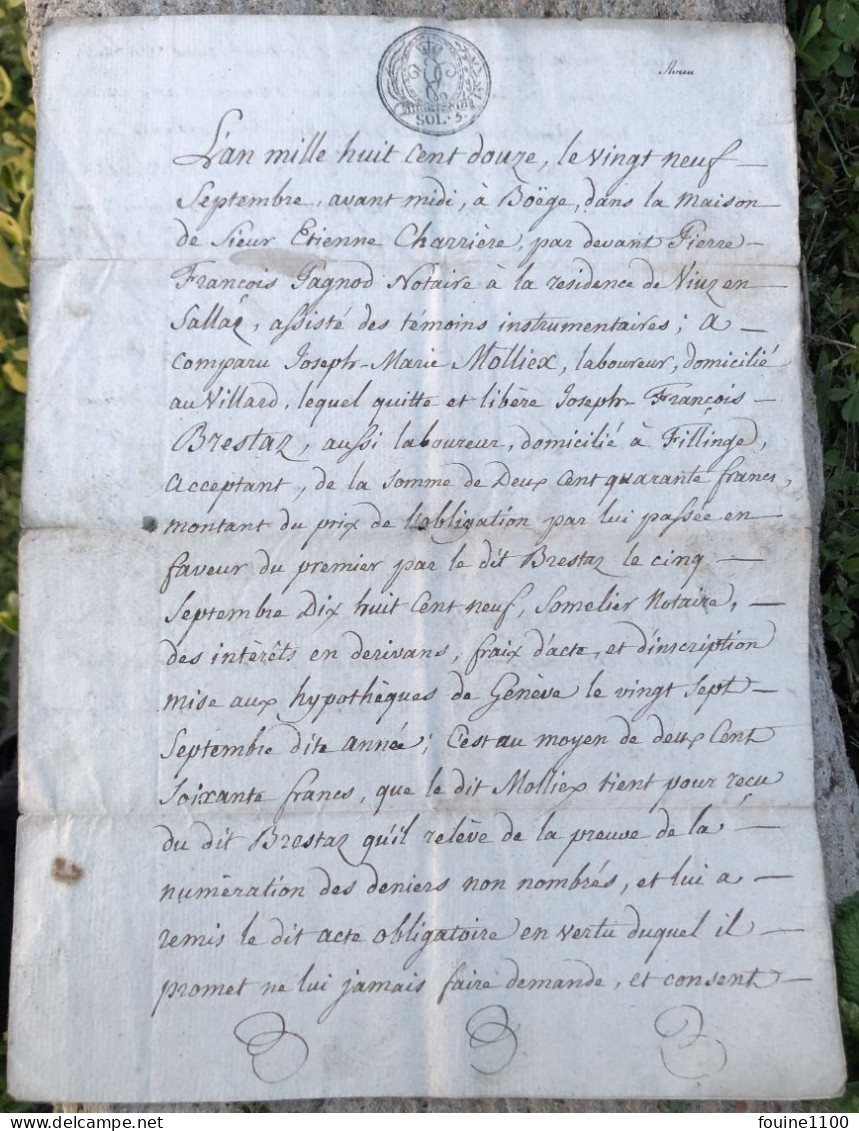 SOL. 5.
L'an mille huit cent douze, le vingt neuf —
Septembre, avant midi, à Boëge, dans la Maison
de Sieur Etienne Charrière, par devant Pierre —
François Gagnod Notaire à la residence de Viuz en
Sallaz, assisté des témoins instrumentaires; a —
comparu Joseph-Marie Molliex, laboureur, domicilié
au Villard, lequel quitte et libère Joseph-François —
Brestaz, aussi laboureur, domicilié à Fillinge,
acceptant, de la somme de Deux cent quarante francs,
montant du prix de l'obligation par lui passée en —
faveur du premier par le dit Brestaz le cinq —
Septembre Dix huit cent neuf, Somelier Notaire, —
des intérêts en derivans, fraix d'acte, et d'inscription
mise aux hypothèques de Genève le vingt sept —
Septembre dite année; C'est au moyen de deux Cent
Soixante francs, que le dit Molliex tient pour reçu
du dit Brestaz qu'il relève de la preuve de la —
numération des deniers non nombrés, et lui a —
remis le dit acte obligatoire en vertu duquel il —
promet ne lui jamais faire demande, et consent —
fouine1100